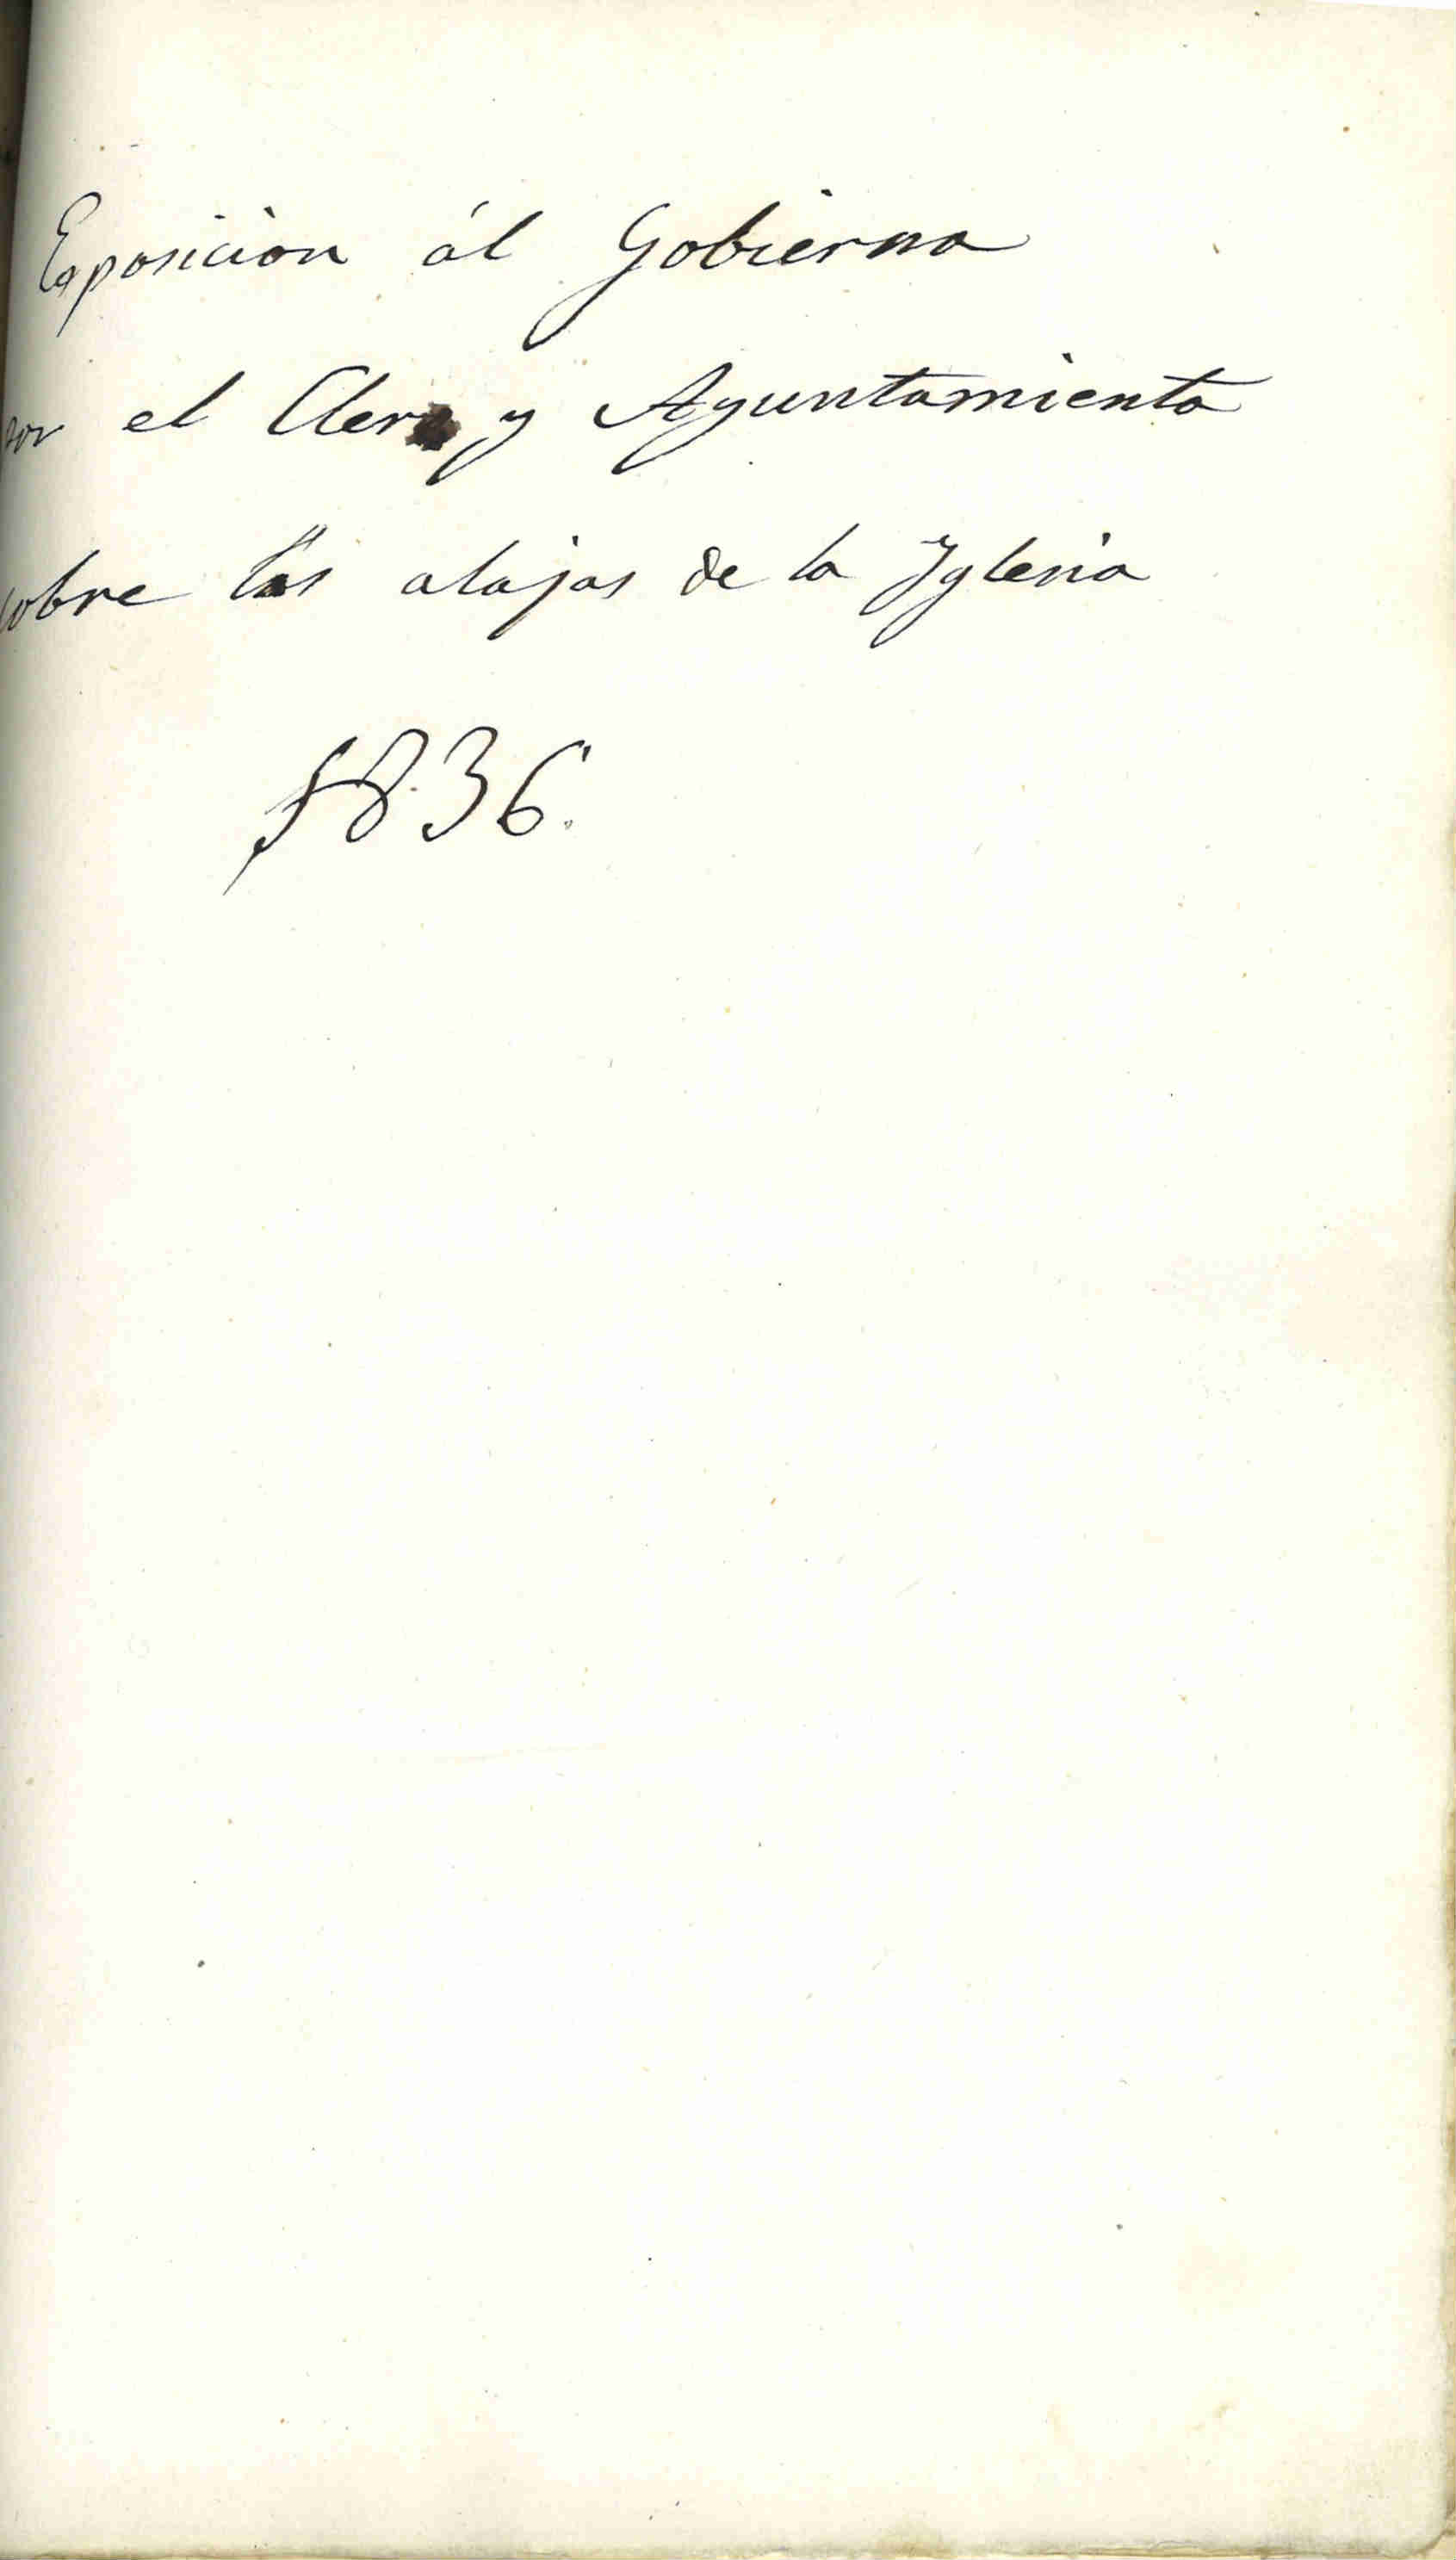 Esposicion ál Gobierno
por el Clero y Ayuntamiento
sobre las alajas de la Yglesia
1836.